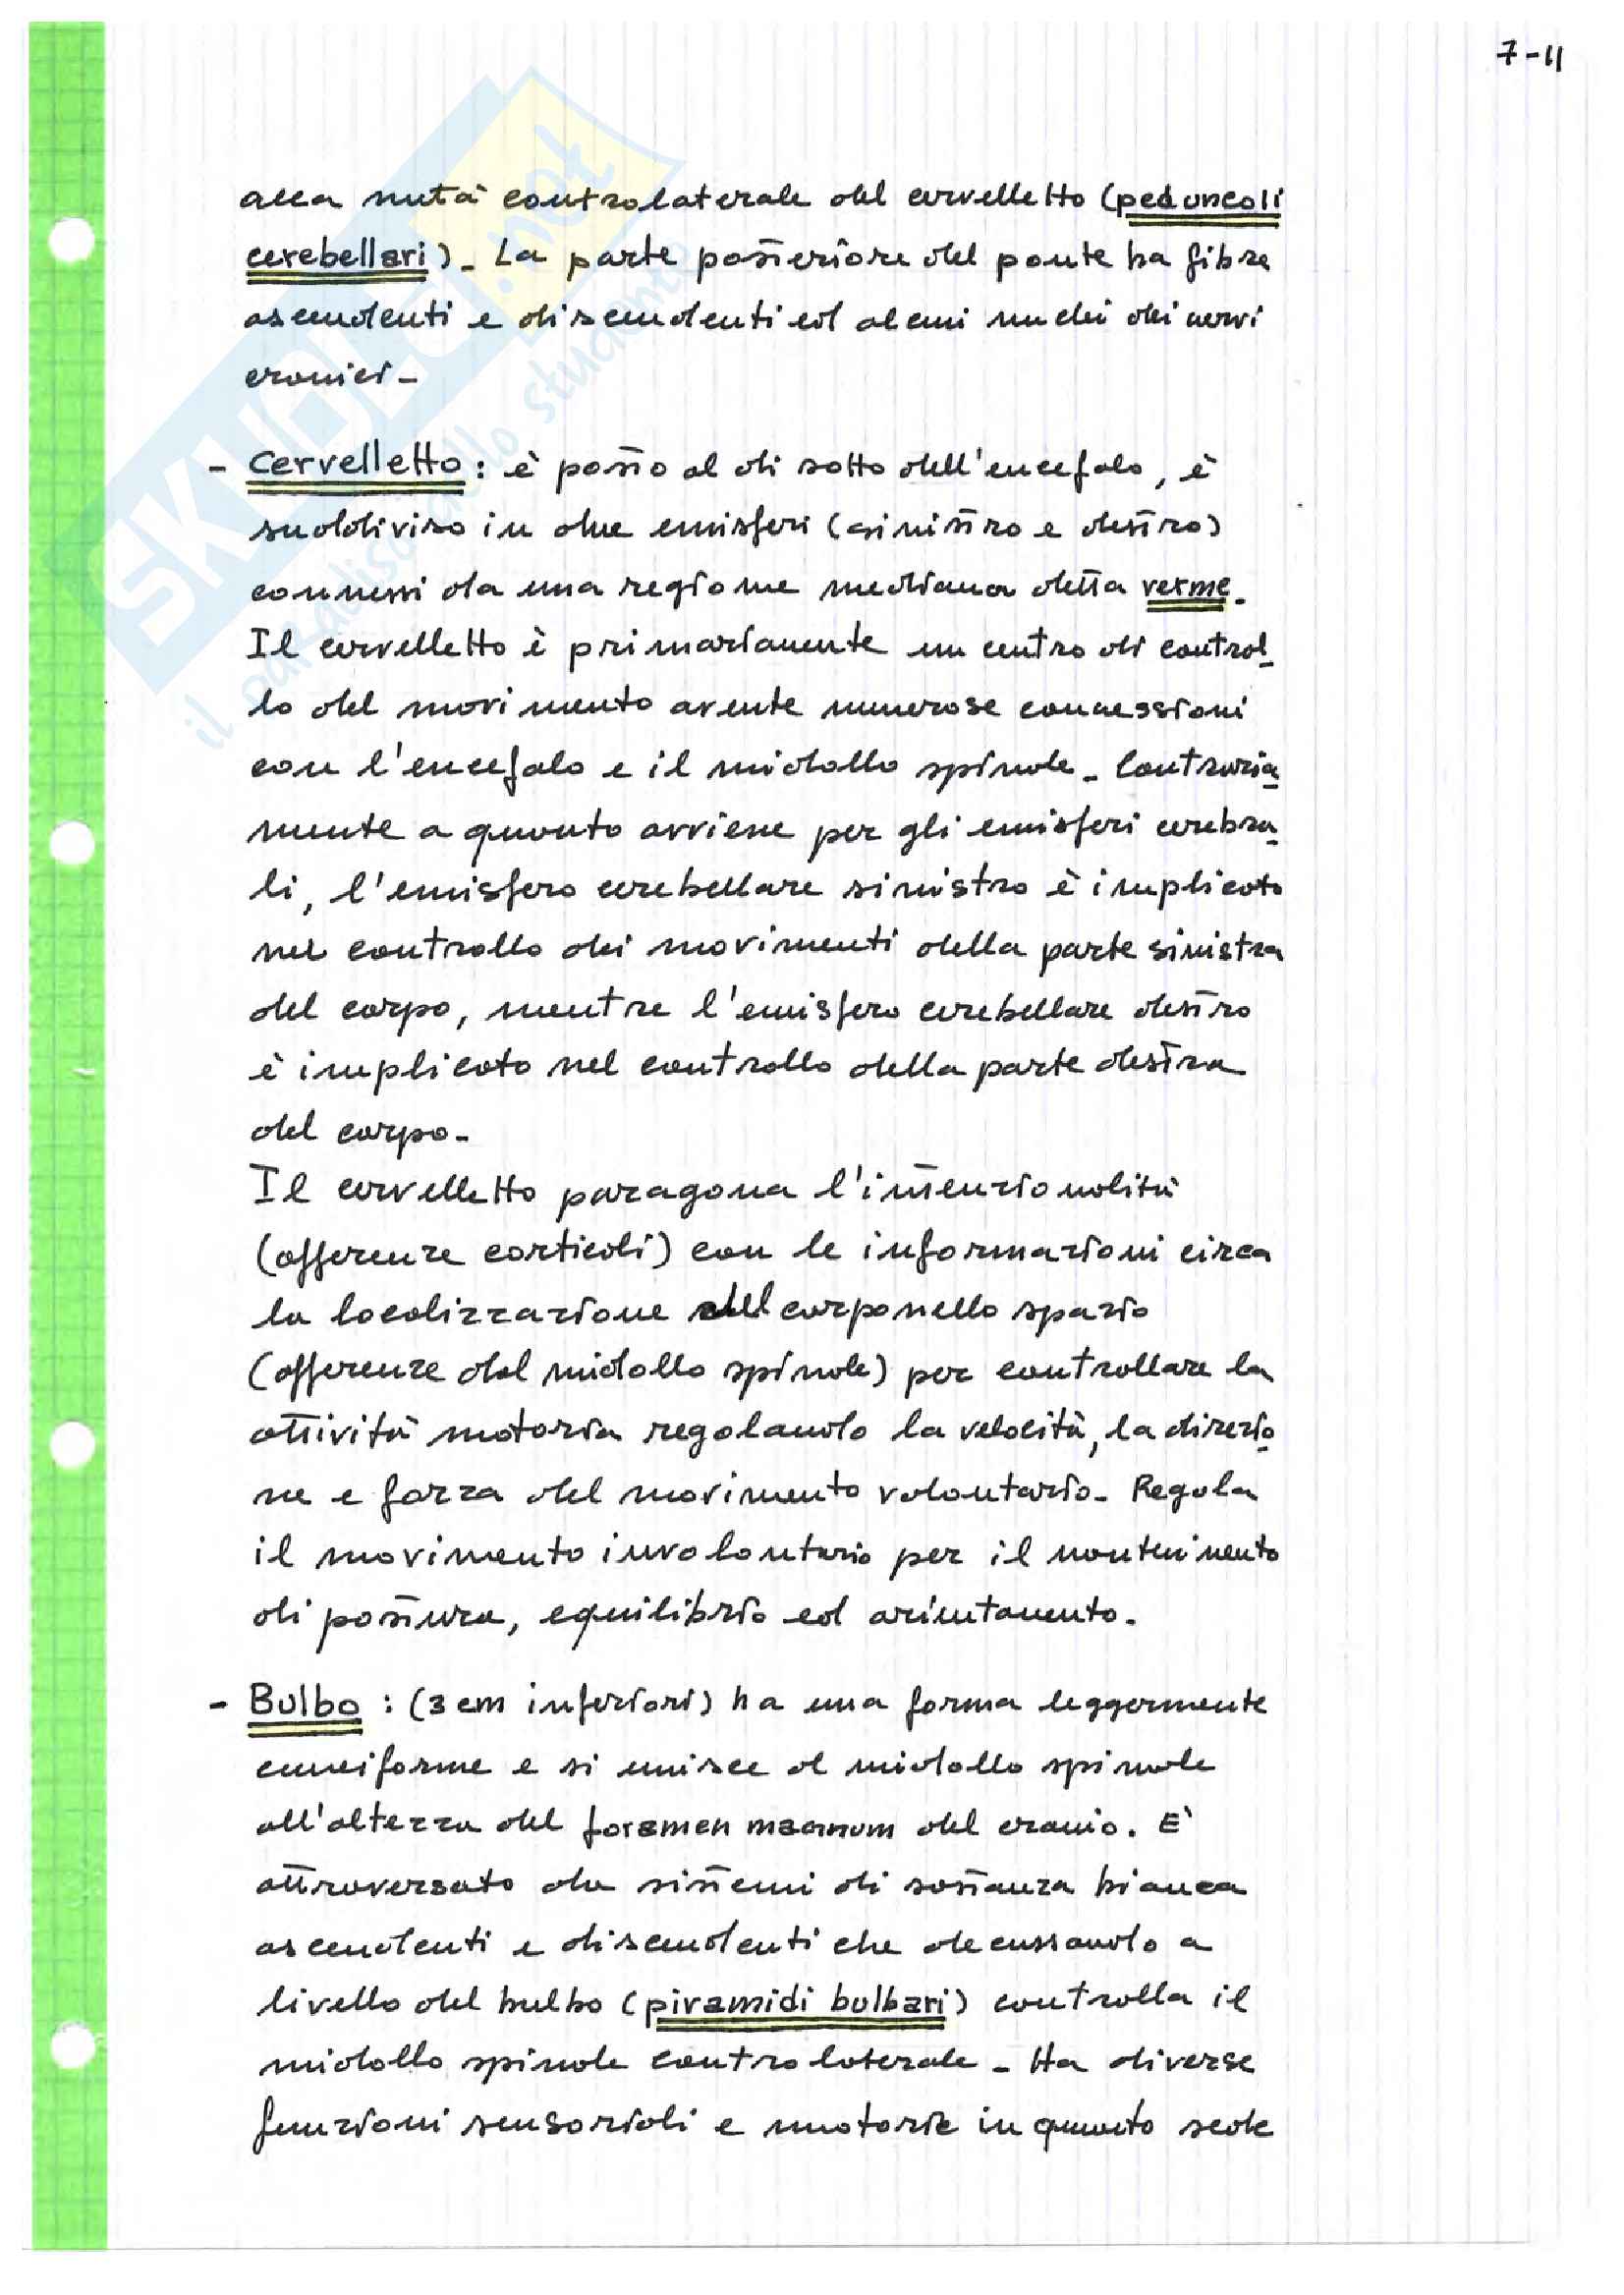 7-11
SKUOLA.net
il paradiso dello studente
alla metà controlaterale del cervelletto (peduncoli
cerebellari). La parte posteriore del ponte ha fibre
ascendenti e discendenti ed alcuni nuclei dei nervi
cranici.
- Cervelletto: è posto al di sotto dell'encefalo, è
suddiviso in due emisferi (sinistro e destro)
connessi da una regione mediana detta verme.
Il cervelletto è primariamente un centro di control-
lo del movimento avente numerose connessioni
con l'encefalo e il midollo spinale. Contraria-
mente a quanto avviene per gli emisferi cerebra-
li, l'emisfero cerebellare sinistro è implicato
nel controllo dei movimenti della parte sinistra
del corpo, mentre l'emisfero cerebellare destro
è implicato nel controllo della parte destra
del corpo.
Il cervelletto paragona l'intenzionalità
(afferenze corticali) con le informazioni circa
la localizzazione del corpo nello spazio
(afferenze dal midollo spinale) per controllare la
attività motoria regolando la velocità, la direzio-
ne e forza del movimento volontario. Regola
il movimento involontario per il mantenimento
di postura, equilibrio ed orientamento.
- Bulbo: (3 cm inferiori) ha una forma leggermente
cuneiforme e si unisce al midollo spinale
all'altezza del foramen magnum del cranio. E'
attraversato da sistemi di sostanza bianca
ascendenti e discendenti che decussando a
livello del bulbo (piramidi bulbari) controlla il
midollo spinale controlaterale. Ha diverse
funzioni sensoriali e motorie in quanto sede